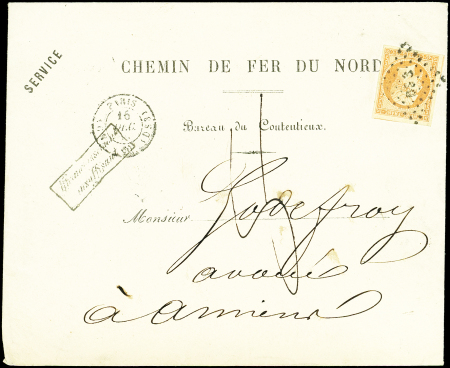 SERVICE
CHEMIN DE FER DU NORD
PARIS
16
Bureau du Contentieux.
Monsieur Godefroy
avoué
à Amiens